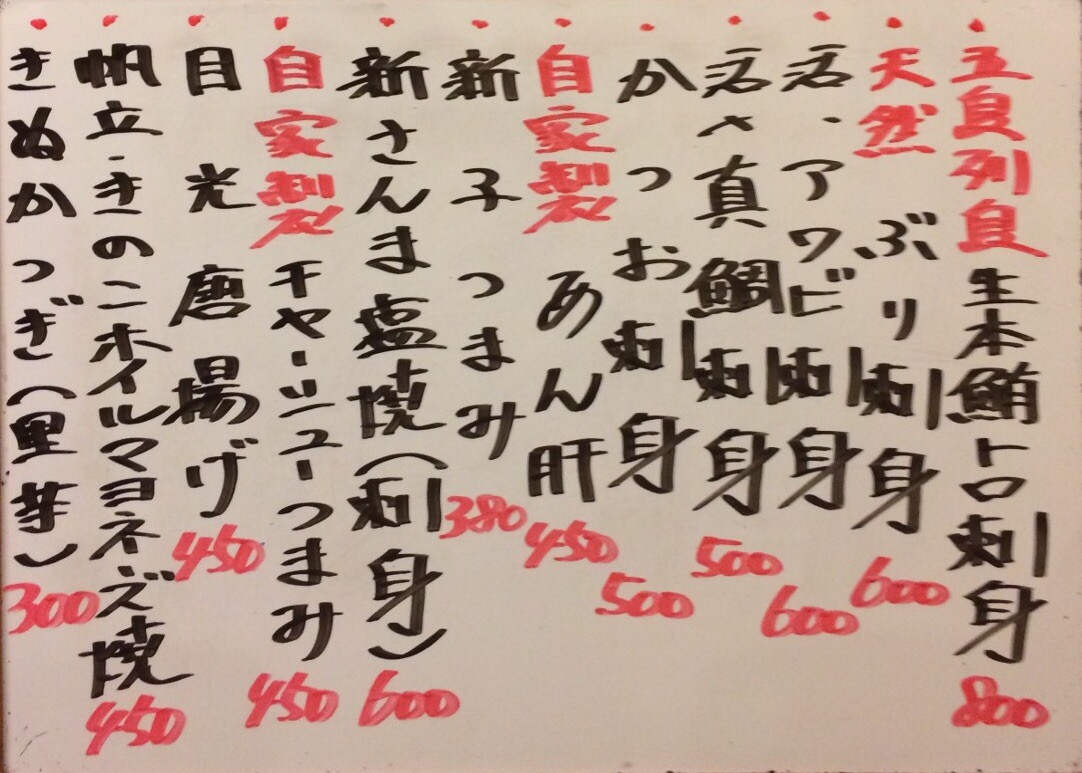 五良列良 生本鮪トロ刺身 800
天然 ぶり刺身 600
活、アワビ刺身 600
活〆真鯛刺身 500
かつお刺身 500
自家製 あん肝 450
新子つまみ 380
新さんま塩焼(刺身) 600
自家製 チャーシューつまみ 450
目光唐揚げ 450
帆立・きのこホイルマヨネーズ焼 450
きぬかつぎ(里芋) 300